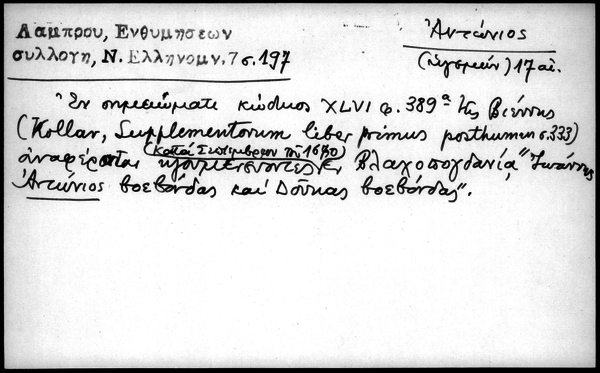 Λαμπρου, Ενθυμησεων
συλλογη, Ν. Ελληνομν. 7 σ. 197
Ἀντώνιος
(Ἡγεμών) 17 αἰ.
Ἐν σημειώματι κώδικος XLVI φ. 389α τῆς Βιέννης
(Kollar, Supplementorum liber primus posthumus σ. 333)
(κατά Σεπτέμβριον τοῦ 1670)
ἀναφέρονται ἡγεμονεύοντες ἐν Βλαχοπογδανίᾳ "Ἰωάννης
Ἀντώνιος βοεβόνδας καί Δούκας βοεβόνδας".